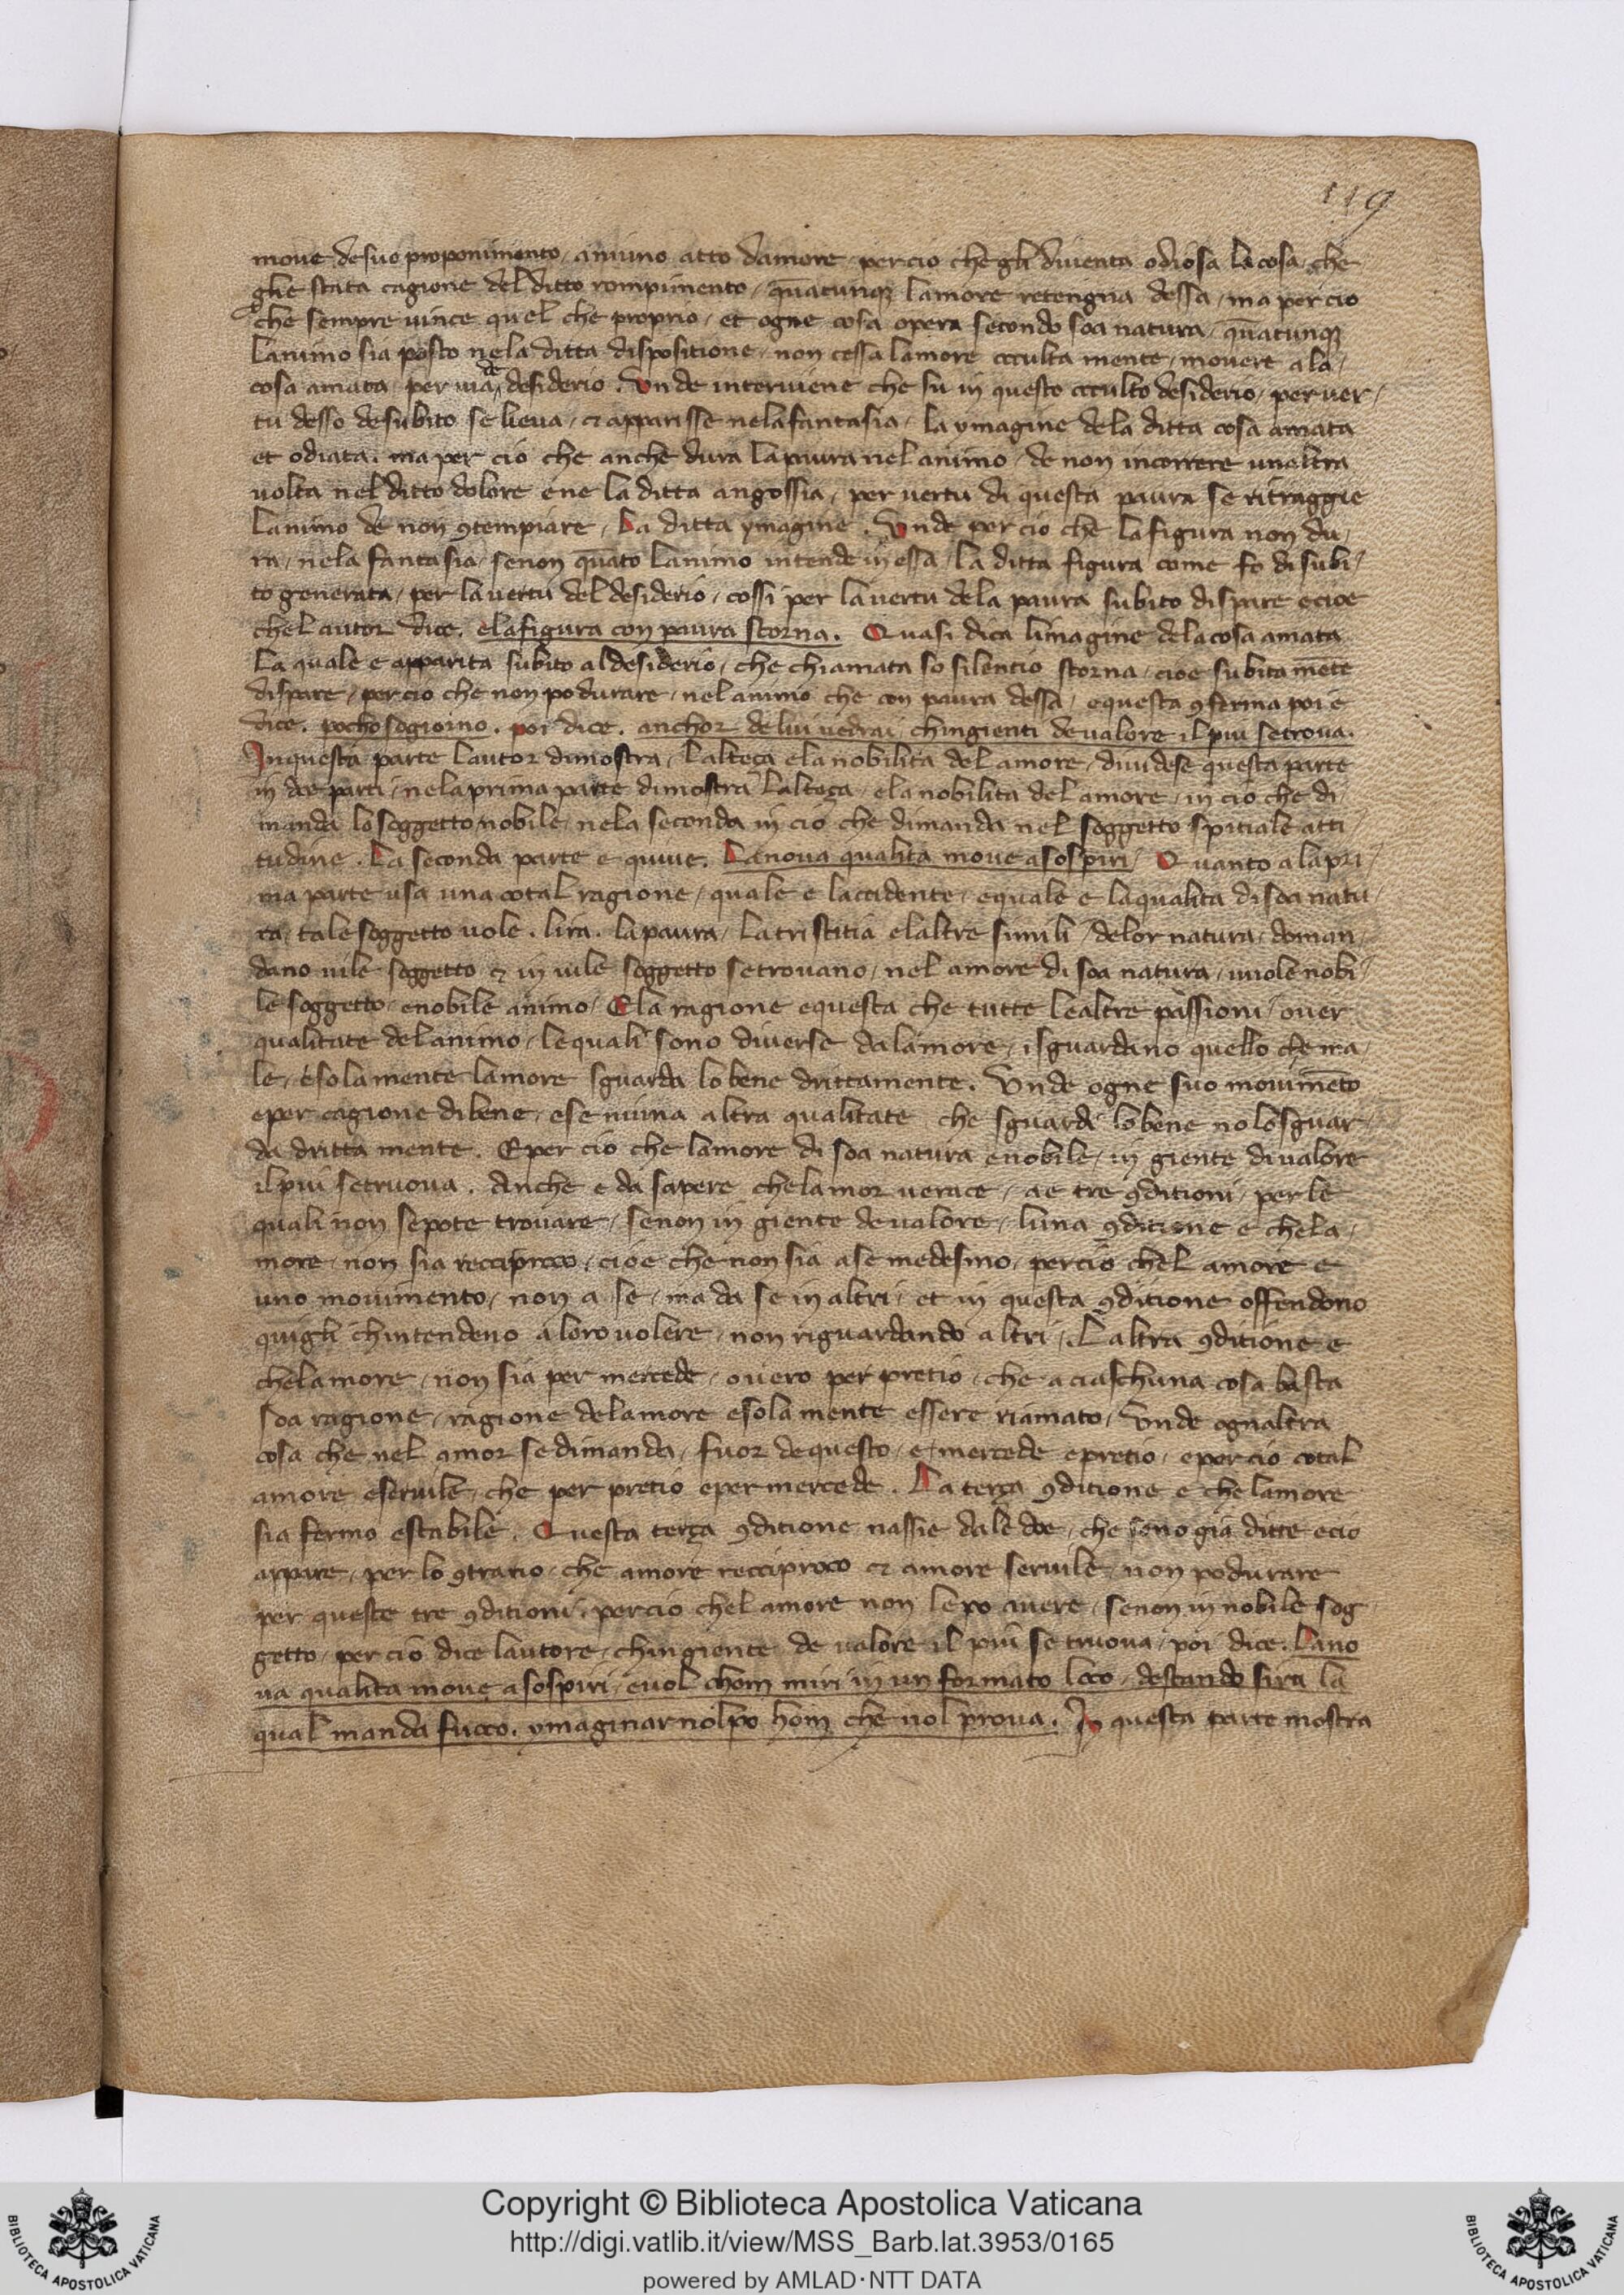 119
moue desuo proponimento / animo atto damore / per cio che gli diuenta odiosa la cosa / che
glie stata cagione del ditto rompimento / quātunqꝫ lamore retengna dessa / ma per cio
che sempre uince quel che proprio / et ogne cosa opera secondo soa natura / quātunqꝫ
lanimo sia posto nela ditta dispositione / non cessa lamore occulta mente / mouere a la /
cosa amata / per uia de desiderio . Unde interuiene che su in questo occulto desiderio / per uer /
tu desso de subito se lieua / ⁊ apparisse nela fantasia / la ymagine dela ditta cosa amata
et odiata . ma per cio che anche dura la paura nel animo / de non incorrere unaltra
uolta nel ditto dolore ene la ditta angossia / per uertu di questa paura se ritraggie
lanimo de non ꝯtempiare / La ditta ymagine . Unde per cio che la figura non du /
ra / nela fantasia / senon quāto lanimo intende in essa / la ditta figura come fo di subi /
to generata / per la uertu del desiderio / cossi per la uertu dela paura subito dispare ecioe
chel autor dice . ela figura con paura storna . Quasi dica limagine dela cosa amata
La quale e apparita subito al desiderio / che chiamata so silencio storna / cioe subita mēte
dispare / per cio che non po durare / nel animo che con paura dessa / e questa ꝯferma poi e
dice . pocho sogiorno . poi dice . anchor de lui uedrai chingienti de ualore il piu se troua .
In questa parte lautor dimostra / lalteça ela nobilita del amore / diuidese questa parte
in doe parti / nela prima parte dimostra lalteça / ela nobilita del amore / in cio che di /
manda lo soggetto nobile / nela seconda in cio che dimanda nel soggetto spitiale atti /
tudine . La seconda parte e quiue . La noua qualita moue a sospiri / Quanto a la pri /
ma parte usa una cotal ragione / quale e laccidente / equale e la qualita di soa natu /
ra / tale soggetto uole . lira . la paura / La tristitia elaltre simili / de lor natura / doman /
dano uile soggetto ⁊ in uile soggetto se trouano / nel amore di soa natura / uuole nobi /
le soggetto / enobile animo / Ela ragione equesta che tutte lealtre passioni / ouer
qualitate del animo / le quali sono diuerse da lamore / isguardano quello che ma /
le / esola mente lamore sguarda lo bene drittamente . Unde ogne suo mouimēto
e per cagione di bene / ese niuna altra qualitate che sguardi lo bene no lo sguar /
da dritta mente . Eper cio che lamore di soa natura enobile / in giente di ualore
il piu se truoua . Anche e da sapere chelamor uerace / ae tre ꝯditioni / per le
quali non se pote trouare / senon in giente de ualore / luna ꝯditione e chela /
more / non sia reciproco / cioe che non sia a se medesmo / per cio chel amore e
uno mouimento / non a se / ma da se in altri / et in questa ꝯditione offendono
quigli chintendeno a loro uolere / non riguardando altri / Laltra ꝯditione e
chelamore / non sia per mercede / ouero per pretio / che a ciaschuna cosa basta
soa ragione / ragione delamore esola mente essere riamato / Unde ognaltra
cosa che nel amor se dimanda / fuor de questo / e mercede e pretio / eper cio cotal
amore eseruile / che per pretio eper mercede . La terça ꝯditione e che lamore
sia fermo e stabile . Questa terça ꝯditione nassie dale doe / che sono gia ditte ecio
appare / per lo ꝯtrario / che amore recciproco ⁊ amore seruile / non po durare
per queste tre ꝯditioni / per cio chel amore non le po auere / senon in nobile sog
getto / per cio dice lautore / chingiente de ualore il piu se truoua / poi dice . La no
ua qualita moue a sospiri / euol chom miri in un formato loco / destando sira la
qual manda fuoco . ymaginar nol po hom che nol proua . In questa parte mostra
Copyright © Biblioteca Apostolica Vaticana
http://digi.vatlib.it/view/MSS_Barb.lat.3953/0165
powered by AMLAD·NTT DATA
BIBLIOTECA APOSTOLICA VATICANA
BIBLIOTECA APOSTOLICA VATICANA